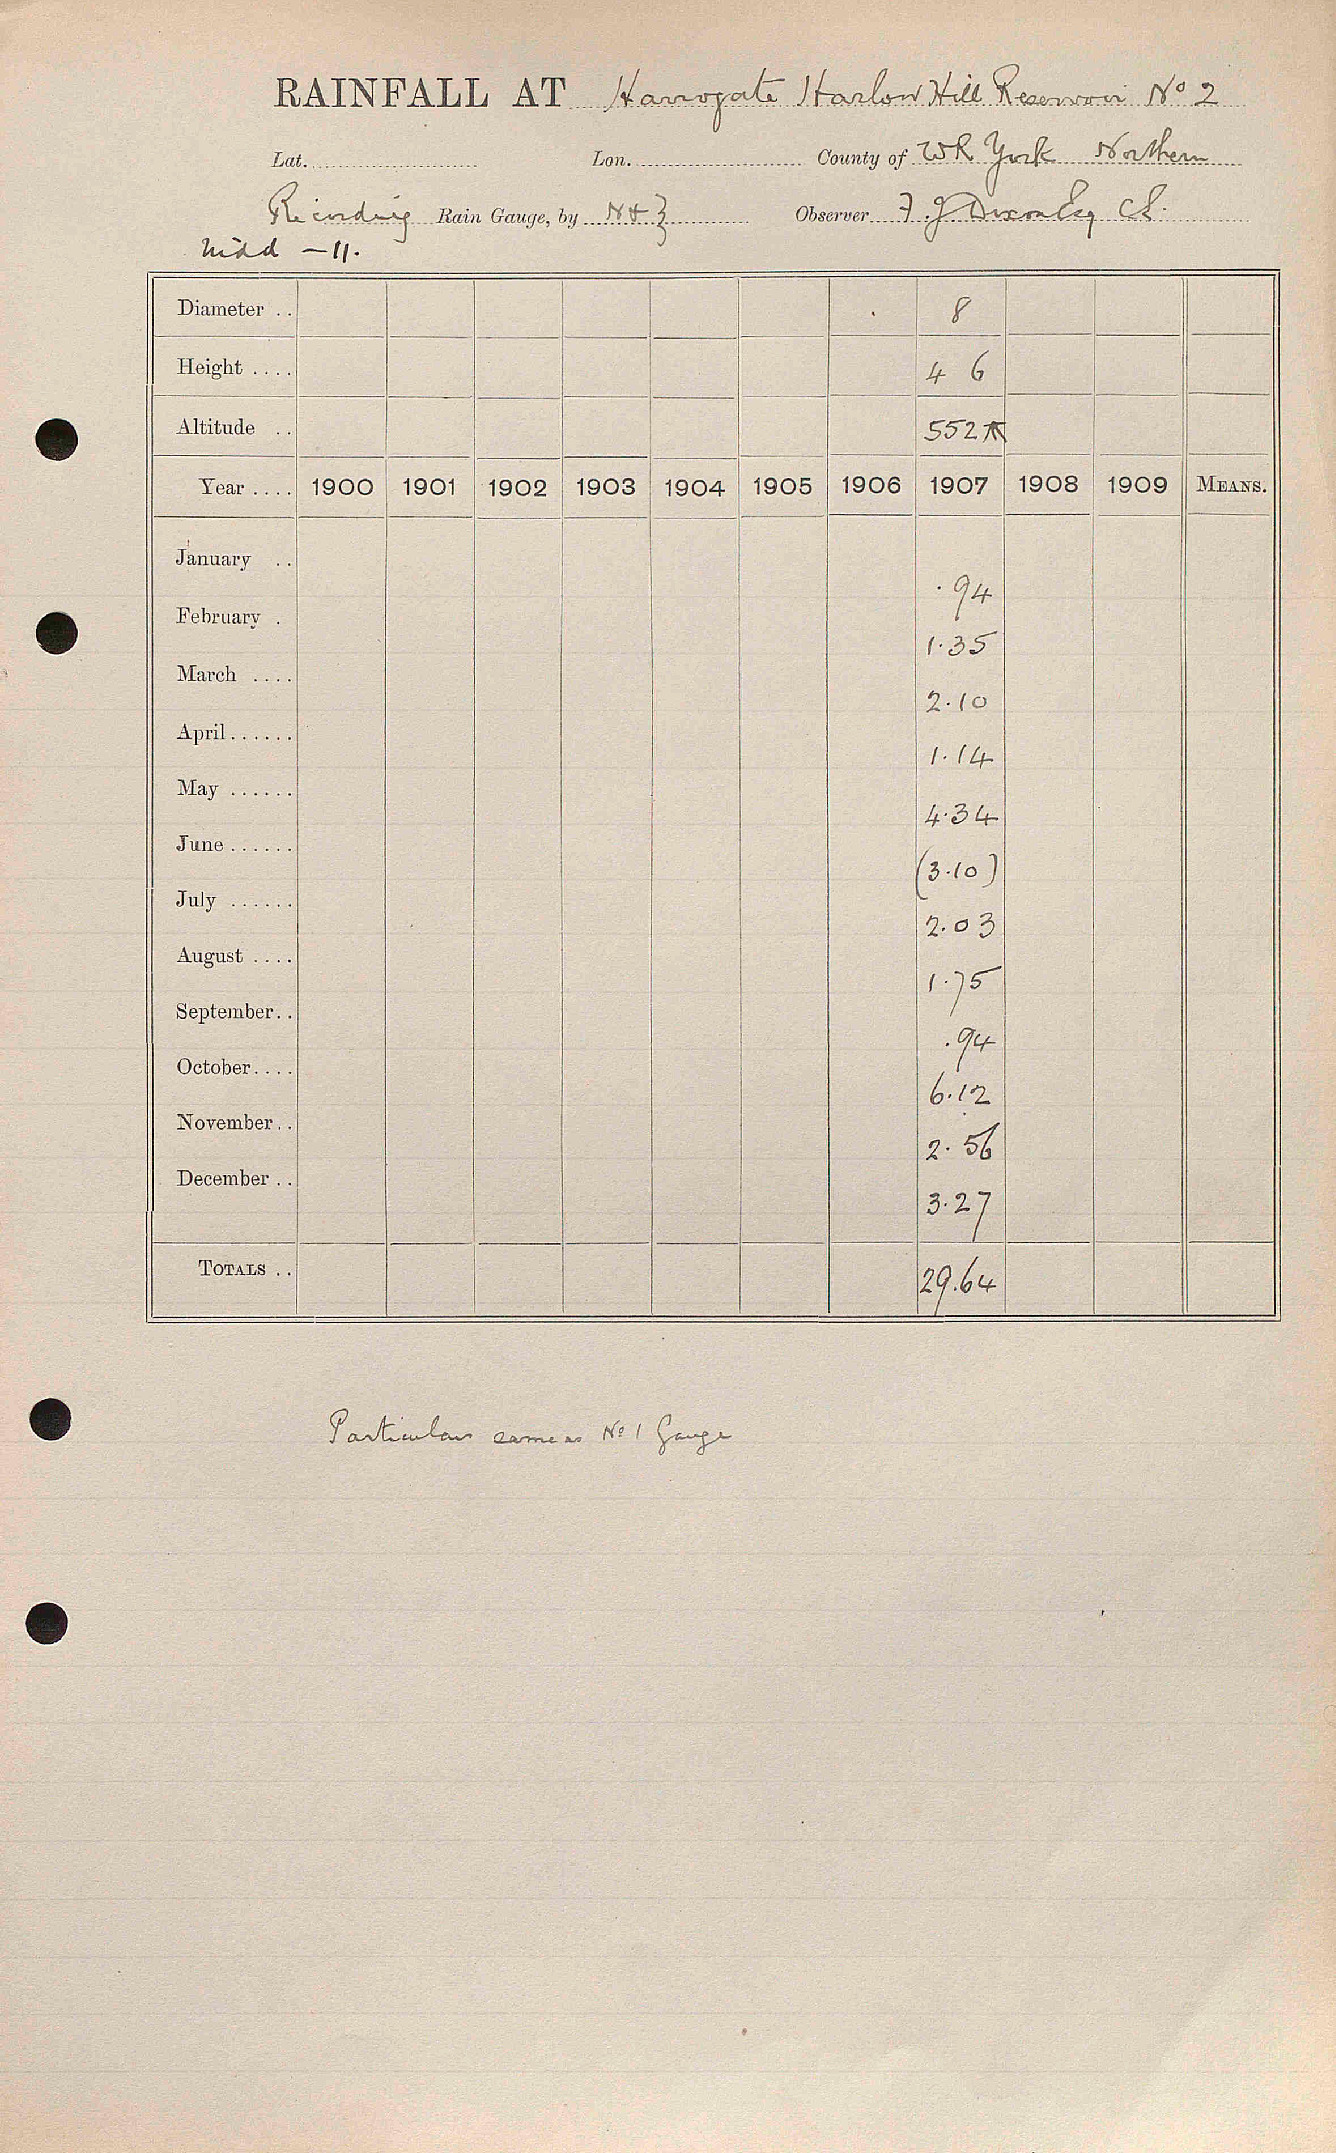 RAINFALL AT Harrogate Harlow Hill Reservoir No 2
Lat. Lon. County of WR York Northern
Recording Rain Gauge, by N & Z Observer F. J Dixon Esq CE.
Nidd — 11.
Diameter .. 8
Height .... 4 6
Altitude .. 552
Year .... 1900 1901 1902 1903 1904 1905 1906 1907 1908 1909 MEANS.
January .. .94
February . 1.35
March .... 2.10
April...... 1.14
May ...... 4.34
June ...... (3.10)
July ...... 2.03
August .... 1.75
September.. .94
October.... 6.12
November.. 2.56
December .. 3.27
TOTALS .. 29.64
Particulars same as No 1 Gauge